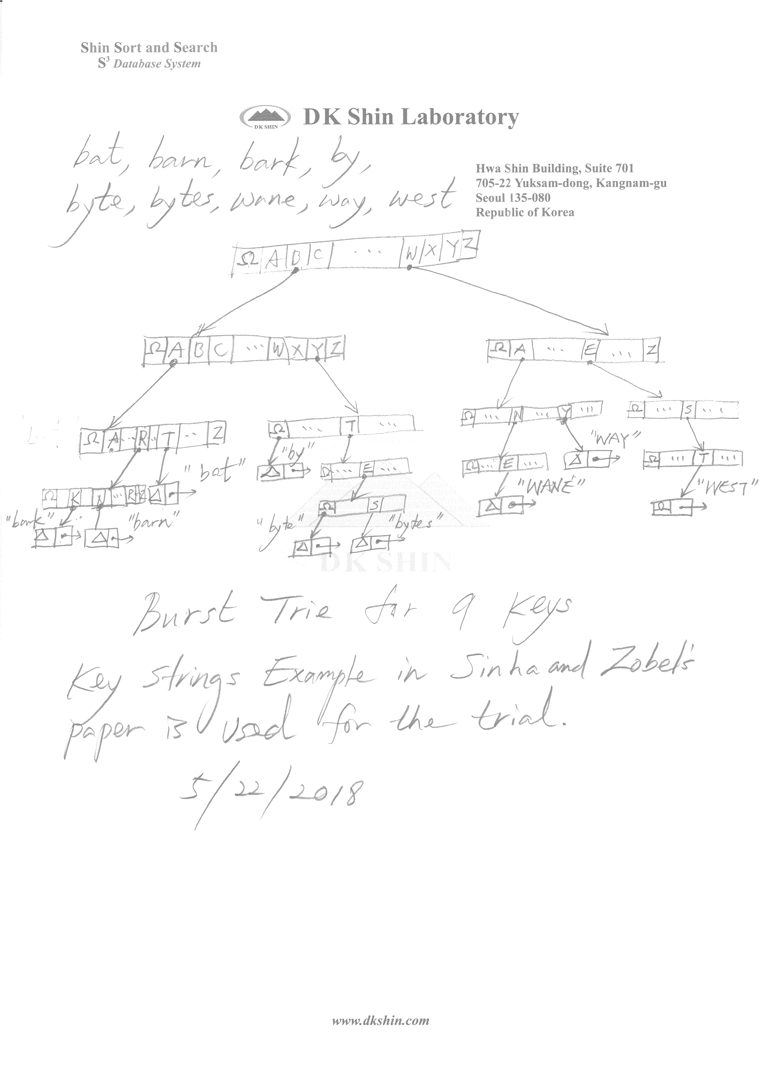 Shin Sort and Search
S³ Database System
DK SHIN
DK Shin Laboratory
bat, barn, bark, by,
byte, bytes, wane, way, west
Hwa Shin Building, Suite 701
705-22 Yuksam-dong, Kangnam-gu
Seoul 135-080
Republic of Korea
Ω A B C ... W X Y Z
Ω A B C ... W X Y Z
Ω A ... E ... Z
Ω A ... R .. T .. Z
Ω ... T ...
Ω ... N ... Y ...
Ω ... S ...
"bat"
"by"
"WAY"
Ω K N ... R Z
... E ...
Ω ... E ...
Ω ... T ...
"bark"
"barn"
"byte"
Ω S
"bytes"
"WANE"
"WEST"
DK SHIN
Burst Trie for 9 Keys
Key Strings Example in Sinha and Zobel's
paper is used for the trial.
5/22/2018
www.dkshin.com